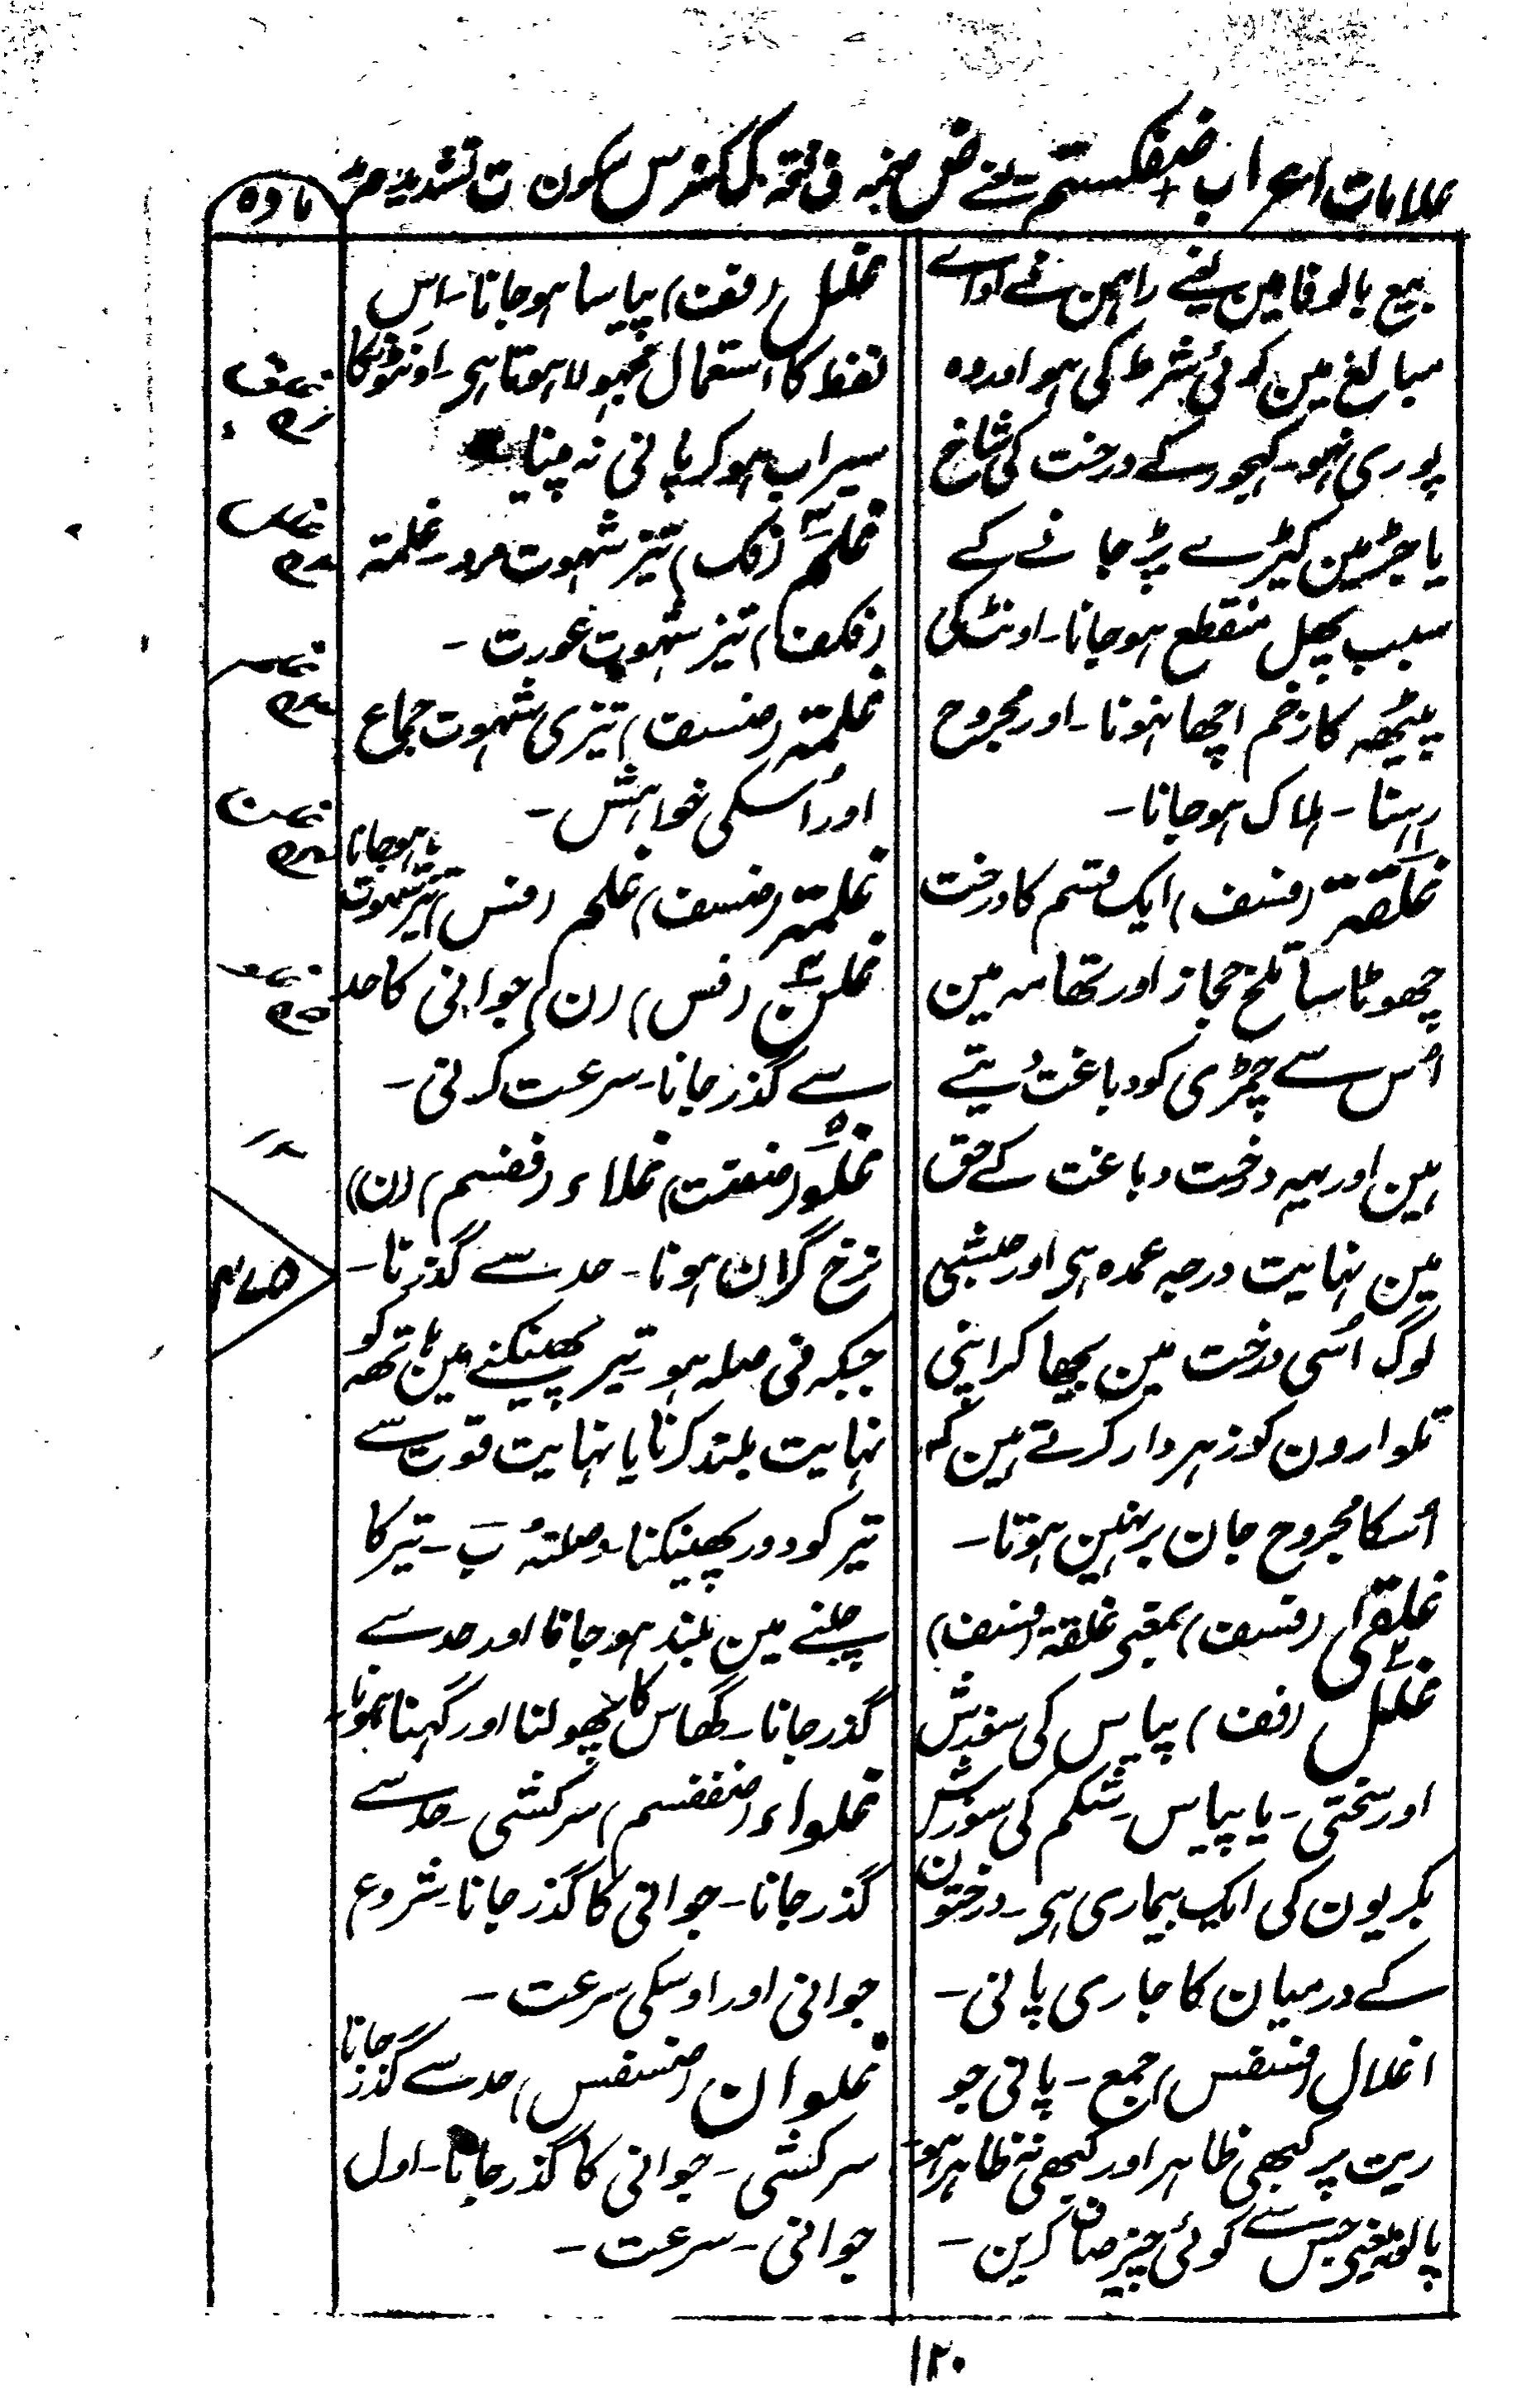 علامات اعراب ضفکستم یعنے ض ضمہ ف فتحہ ک کسرہ س سکون ت تشدید م مد
مادہ
بیع بالوفا مین یعنے راہن نے اداے
مبالغ مین کوئی شرط کی ہو اور وہ
پوری نہو۔ کہجور کے درخت کی شاخ
یا جڑ مین کیڑے پڑ جانے کے
سبب پھل منقطع ہو جانا۔ اونٹ کی
پیٹھہ کا زخم اچھا نہونا۔ اور مجروح
رہنا۔ ہلاک ہو جانا۔
غلقة (فسف) ایک قسم کا درخت
چھوٹا سا تلخ حجاز اور تھامہ مین
اُس سے چمڑی کو دباغت دیتے
ہین اور یہہ درخت دباغت کے حق
مین نہایت درجہ عمدہ ہی اور حبشی
لوگ اُسی درخت مین بجھا کر اپنی
تلوارون کو زہردار کرتے ہین کہ
اُسکا مجروح جان بر نہین ہوتا۔
غلقی (فسف) بمعنی غلقة (فسف)
غلل (فف) پیاس کی سوزش
اور سختی۔ یا پیاس۔ شکم کی سوزش
بکریون کی ایک بیماری ہی۔ درختون
کے درمیان کا جاری پانی۔
اغلال (فسفس) جمع۔ پانی جو
ریت پر کبھی ظاہر اور کبھی نہ ظاہر ہو۔
پالونہ یعنی جس سے کوئی چیز صاف کرین۔
غلل (فف) پیاسا ہو جانا۔ اس
لفظ کا استعمال مجہولا ہوتا ہی۔ اونٹون کا
سیراب ہو کر پانی نہ پینا۔
غلم (فک) تیز شہوت مرد۔ غلمة
(فکف) تیز شہوت عورت۔
غلمة (ضسف) تیزی شہوت جماع
اور اُسکی خواہش۔
غلمة (ضسف) غلم (فس) تیز شہوت ہو جانا
غلن (فس) (ن) جوانی کا حد
سے گذر جانا۔ سرعت کرنی۔
غلو (ضضت) غلاء (ففسم) (ن)
نرخ گران ہونا۔ حد سے گذرنا۔
جبکہ فی صلہ ہو تیر پھینکنے مین ہاتھہ کو
نہایت بلند کرنا یا نہایت قوت سے
تیر کو دور پھینکنا۔ وصلتہُ بَ۔ تیر کا
چلنے مین بلند ہو جانا اور حد سے
گذر جانا۔ گھاس کا پھولنا اور گہنا ہونا۔
غلواء (ضففسم) سرکشی۔ حد سے
گذر جانا۔ جوانی کا گذر جانا۔ شروع
جوانی اور اوسکی سرعت۔
غلوان (ضسفس) حد سے گذر جانا
سرکشی۔ جوانی کا گذر جانا۔ اول
جوانی۔ سرعت۔
۱۲۰